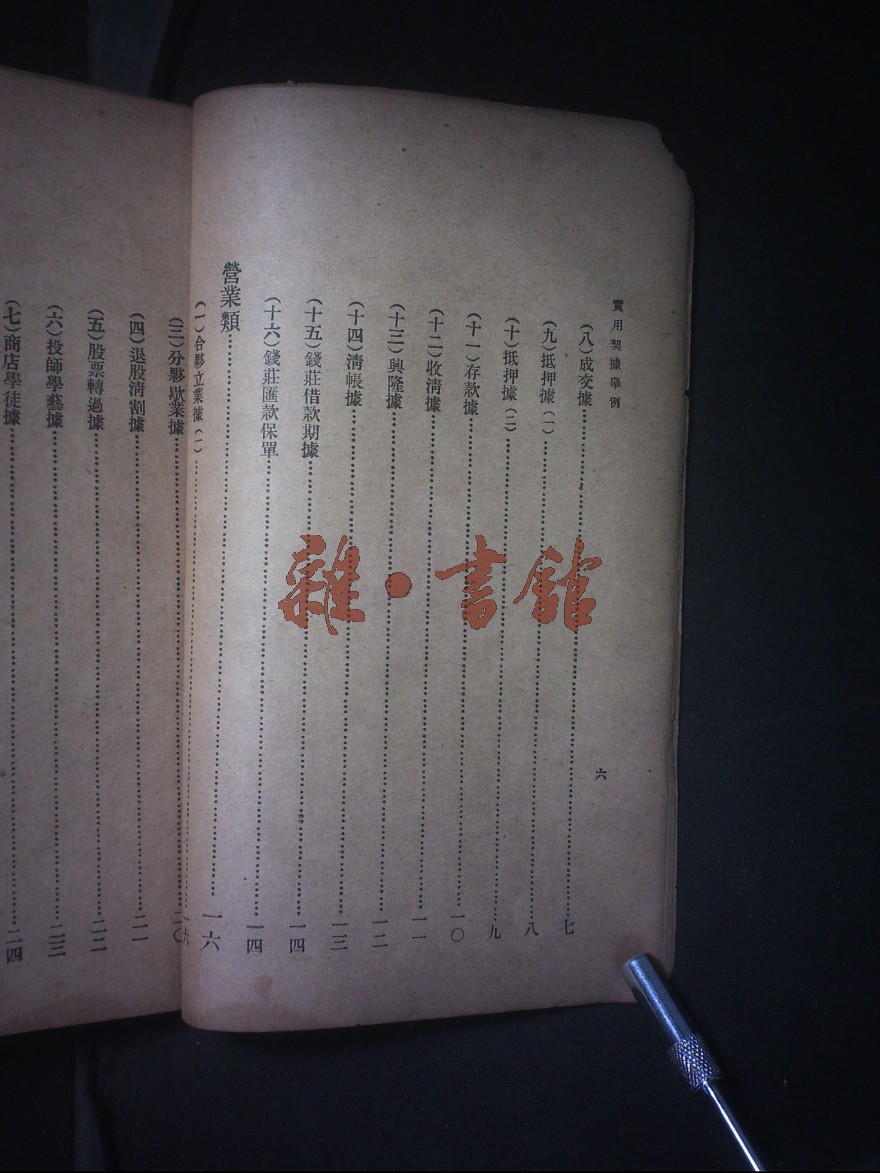 實用契據舉例
六
(八)成交據……七
(九)抵押據(一)……八
(十)抵押據(二)……九
(十一)存款據……一〇
(十二)收清據……一一
(十三)興隆據……一二
(十四)清帳據……一三
(十五)錢莊借款期據……一四
(十六)錢莊匯款保單……一四
營業類……一六
(一)合夥立業據(一)……一六
(三)分夥歇業據……二〇
(四)退股清割據……二一
(五)股票轉過據……二二
(六)投師學藝據……二三
(七)商店學徒據……二四
雜·書館